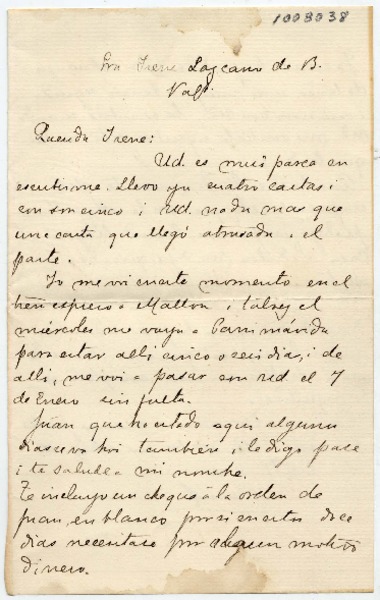 1008038
Sra Irene Lazcano de B.
Valp.
Querida Irene:
Ud. es mui parca en
escribirme. Llevo ya cuatro cartas i
con son cinco i Ud. nada mas que
una carta que llegó atrasada i el
parte.
Yo me voi en este momento en el
tren espreso a Malloa i talvez el
miércoles me vaya a Panimávida
para estar alli cinco o seis dias, i de
alli, me voi a pasar con Ud el 7
de Enero sin falta.
Juan que ha estado aqui algunos
dias se va hoi tambien i le digo pase
i te salude a mi nombre.
Te incluyo un cheque à la orden de
Juan, en blanco por si en estos doce
dias necesitase por algun motivo
dinero.